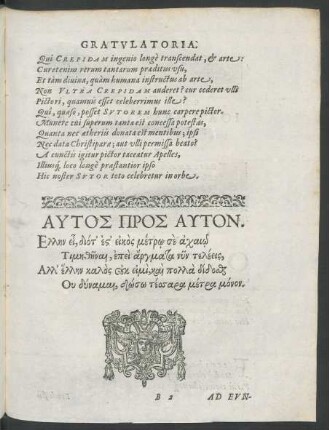 GRATVLATORIA:
Qui CREPIDAM ingenio longè transcendat, & arte:
Cur etenim rerum tantarum præditus vsu,
Et tàm diuina, quàm humana instructus ab arte,
Non VLTRA CREPIDAM anderet? cur cederet vlli
Pictori, quamuis esset celeberrimus ille?
Qui, quæso, posset SVTOREM hunc carpere pictor.
Munere cui superum tanta est concessa potestas,
Quanta nec ætheriis donata est mentibus, ipsi
Nec data Christiparæ; aut vlli permissa beato?
A cunctis igitur pictor taceatur Apelles,
Illiusq́; loco longè præstantior ipso
Hic noster SVTOR toto celebretur in orbe.
ΑΥΤΟΣ ΠΡΟΣ ΑΥΤΟΝ.
Ελλην εἶ, διότ' ἐς' εἰκὸς μέτρῳ σὲ ἀχαιῷ
Τιμηθῆναι, ἐπεὶ ἄργμαζα νῦν τελέεις,
Αλλ' ἕλλην καλὸς οὐκ εἰμὶ, καὶ πολλὰ διδοῦς
Ου δύναμαι, σώσω τέσσαρα μέτρα μόνον.
B 2 AD EVN-